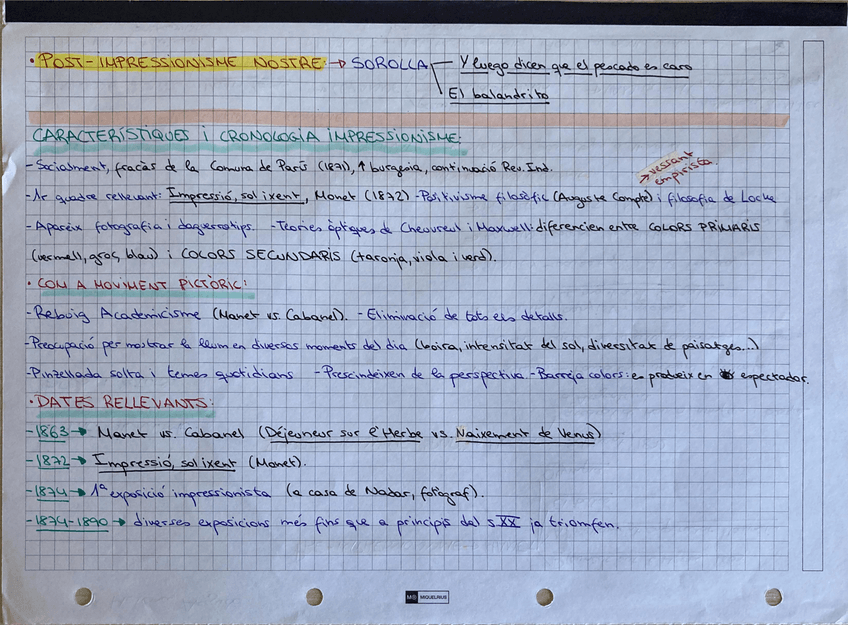 · POST-IMPRESSIONISME NOSTRE: → SOROLLA Y luego dicen que el pescado es caro
El balandrito
CARACTERÍSTIQUES i CRONOLOGIA IMPRESSIONISME:
- Socialment, fracàs de la Comuna de París (1871), ↑ burgesia, continuació Rev. Ind.
→ vessant empirista.
- 1r quadre rellevant: Impressió, sol ixent, Monet (1872) - Positivisme filosòfic (Auguste Compte) i filosofia de Locke
- Apareix fotografia i daguerrotips. - Teories òptiques de Chevreul i Maxwell: diferencien entre COLORS PRIMARIS
(vermell, groc, blau) i COLORS SECUNDARIS (taronja, viola i verd).
· COM A MOVIMENT PICTÒRIC:
- Rebuig Academicisme (Manet vs. Cabanel). - Eliminació de tots els detalls.
- Preocupació per mostrar la llum en diversos moments del dia (boira, intensitat del sol, diversitat de paisatges...)
- Pinzellada solta i temes quotidians - Prescindeixen de la perspectiva - Barreja colors: es produeix en espectador.
· DATES RELLEVANTS:
- 1863 → Manet vs. Cabanel (Déjeuneur sur l'Herbe vs. Naixement de Venus)
- 1872 → Impressió, sol ixent (Monet).
- 1874 → 1ª exposició impressionista (a casa de Nadar, fotògraf).
- 1874-1890 → diverses exposicions més fins que a principis del s XX ja triomfen.
MIQUELRIUS